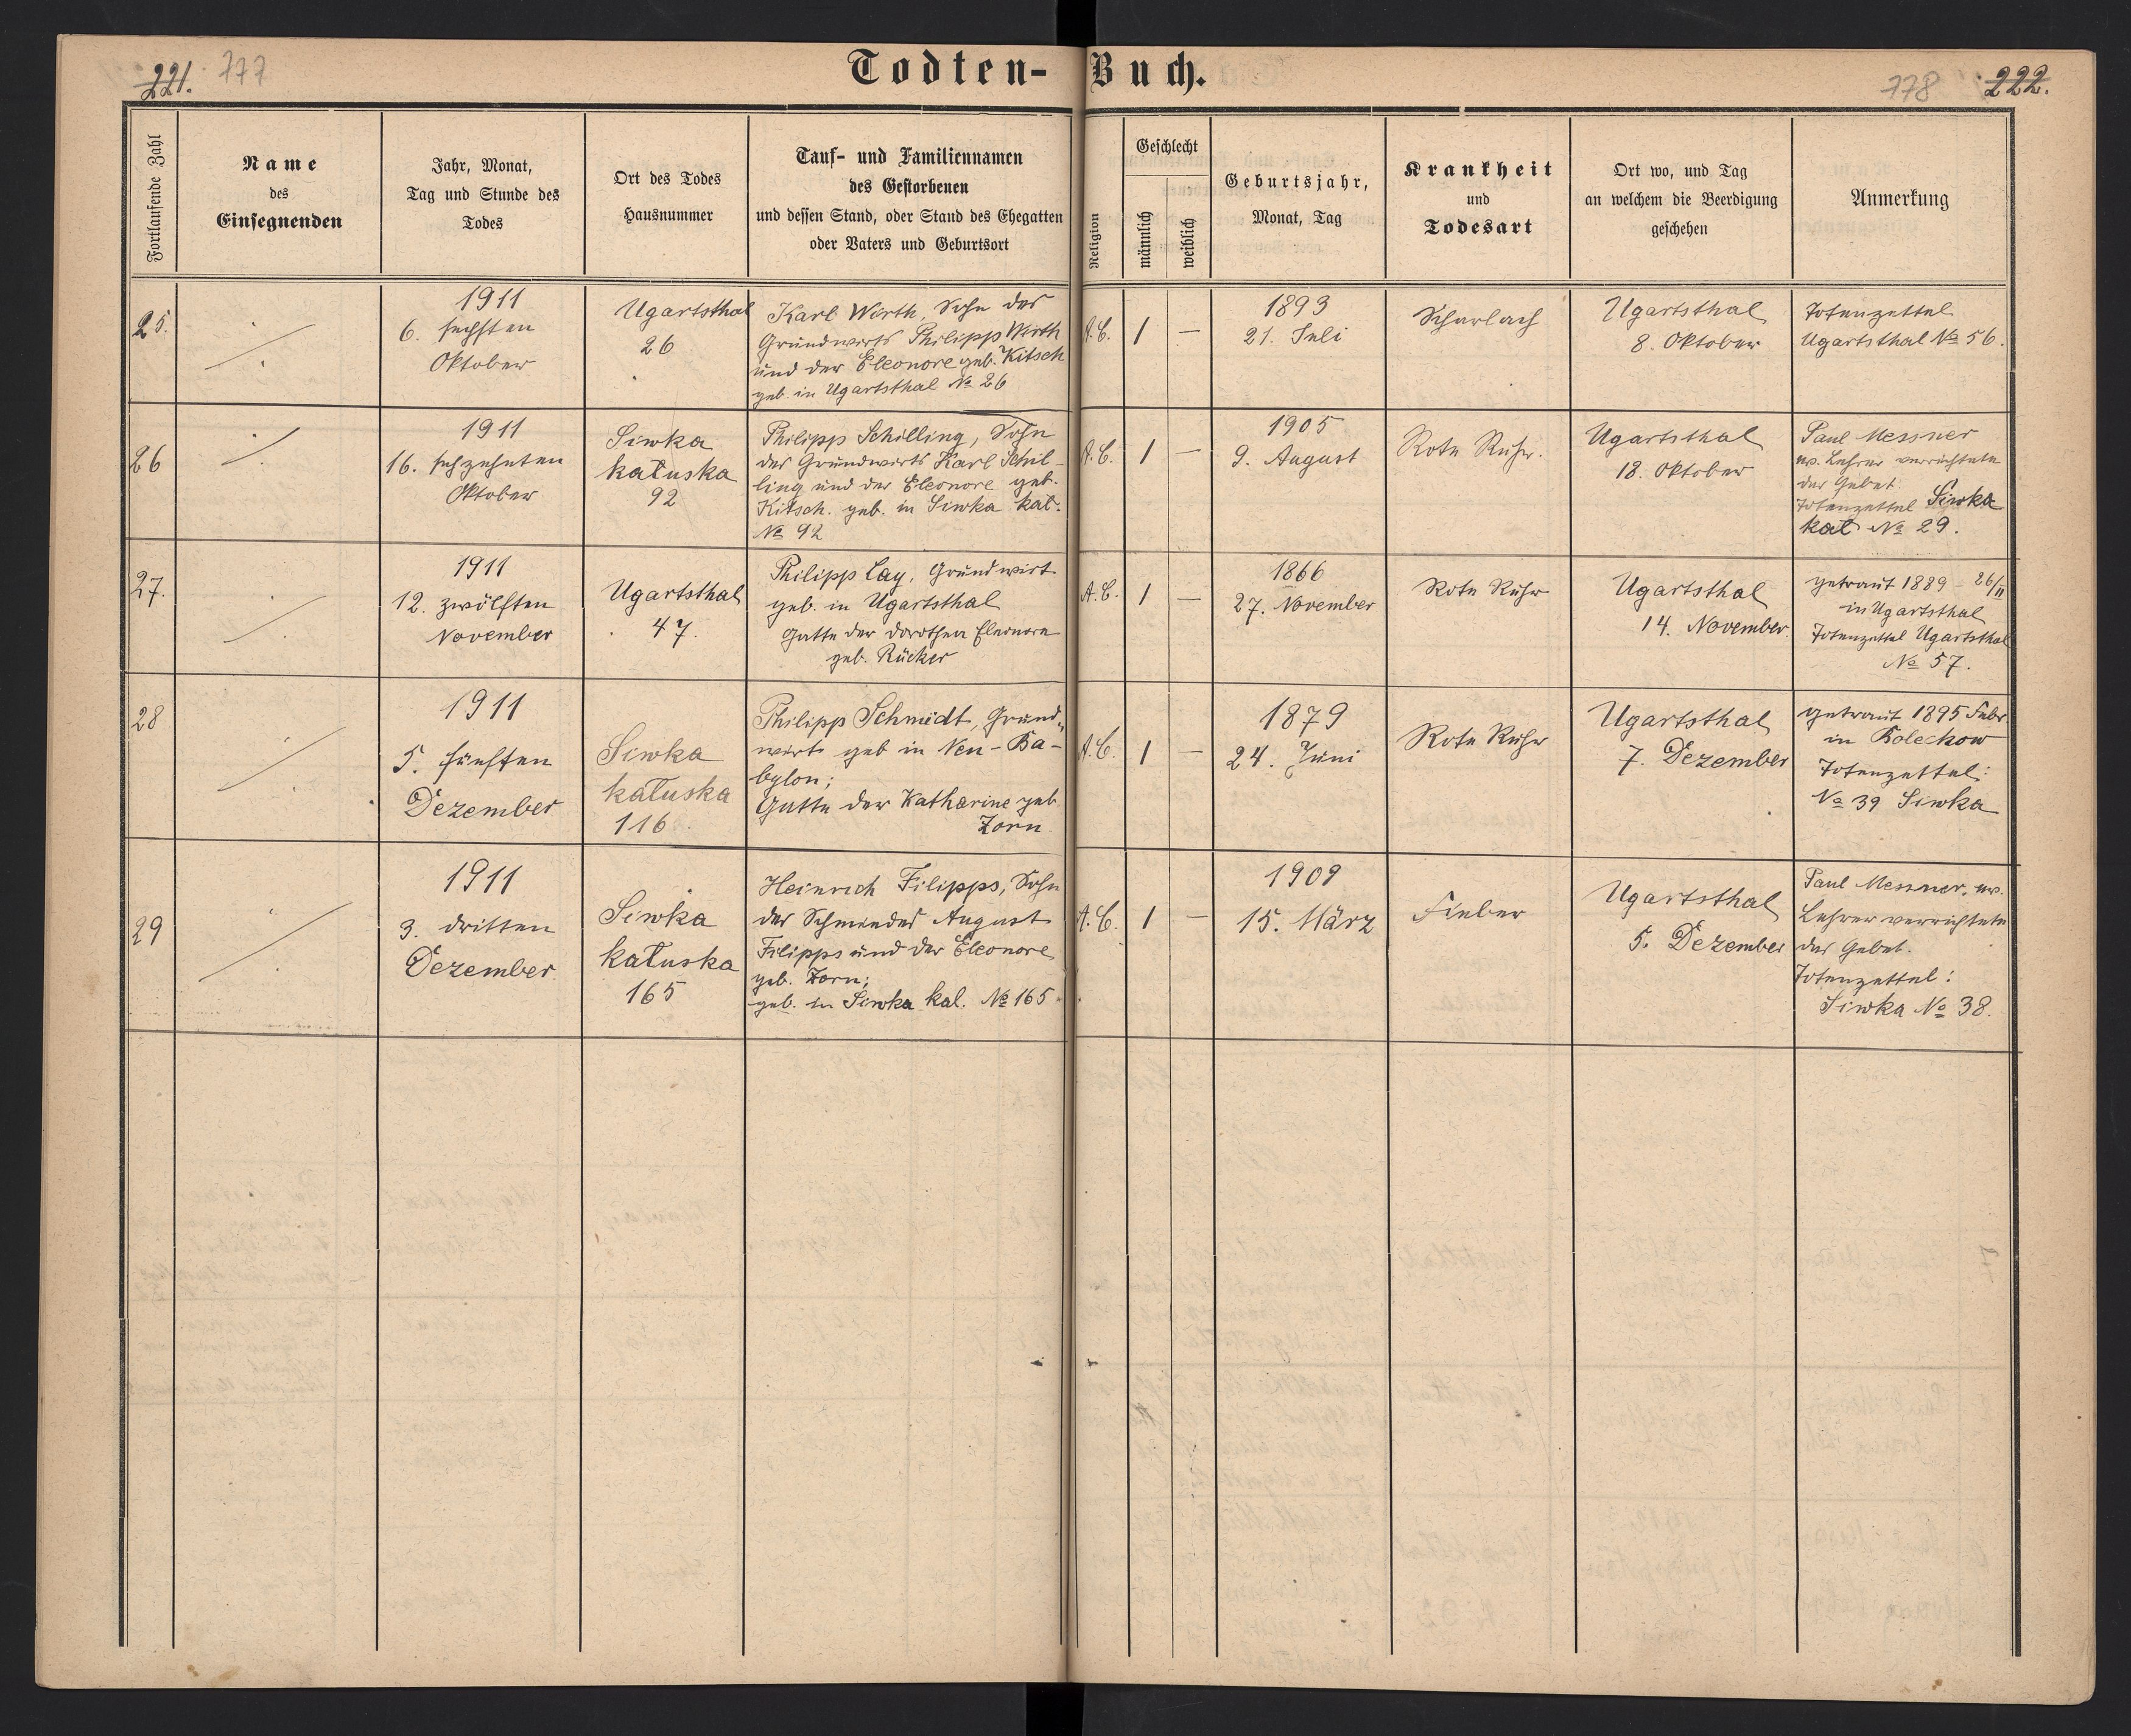 221. 777
Todten-Buch.
778 222.
Fortlaufende Zahl
Name
des
Einsegnenden
Jahr, Monat,
Tag und Stunde des
Todes
Ort des Todes
Hausnummer
Tauf- und Familiennamen
des Gestorbenen
und dessen Stand, oder Stand des Ehegatten
oder Vaters und Geburtsort
Religion
Geschlecht
männlich
weiblich
Geburtsjahr,
Monat, Tag
Krankheit
und
Todesart
Ort wo, und Tag
an welchem die Beerdigung
geschehen
Anmerkung
25.
1911
6. sechsten
Oktober
Ugartsthal
26
Karl Wirth, Sohn des
Grundwirts Philipp Wirth
und der Eleonore geb. Kitsch
geb. in Ugartsthal № 26
A.C.
1
—
1893
21. Juli
Scharlach
Ugartsthal
8. Oktober
Totenzettel
Ugartsthal № 56.
26
1911
16. sechzehnten
Oktober
Siwka
kałuska
92
Philipp Schilling, Sohn
des Grundwirts Karl Schil-
ling und der Eleonore geb.
Kitsch. geb. in Siwka kał.
№ 92
A.C.
1
—
1905
9. August
Rote Ruhr.
Ugartsthal
18. Oktober
Paul Messner
ev. Lehrer verrichtete
das Gebet.
Totenzettel Siwka
kał № 29.
27.
1911
12. zwölften
November
Ugartsthal
47.
Philipp Lay, Grundwirt
geb. in Ugartsthal
Gatte der Dorothea Eleonore
geb. Rücker
A.C.
1
—
1866
27. November
Rote Ruhr
Ugartsthal
14. November.
getraut 1889 - 26/II
in Ugartsthal
Totenzettel Ugartsthal
№ 57.
28
1911
5. fünften
Dezember
Siwka
kałuska
116.
Philipp Schmidt, Grund-
wirt geb in Neu-Ba-
bylon;
Gatte der Katharine geb.
Zorn
A.C.
1
—
1879
24. Juni
Rote Ruhr
Ugartsthal
7. Dezember
getraut 1895 Febr.
in Bolechow
Totenzettel:
№ 39 Siwka
29
1911
3. dritten
Dezember
Siwka
kałuska
165
Heinrich Filipps, Sohn
des Schmiedes August
Filipps und der Eleonore
geb. Zorn;
geb. in Siwka kal. № 165
A.C.
1
—
1909
15. März
Fieber
Ugartsthal
5. Dezember
Paul Messner, ev.
Lehrer verrichtete
das Gebet.
Totenzettel:
Siwka № 38.